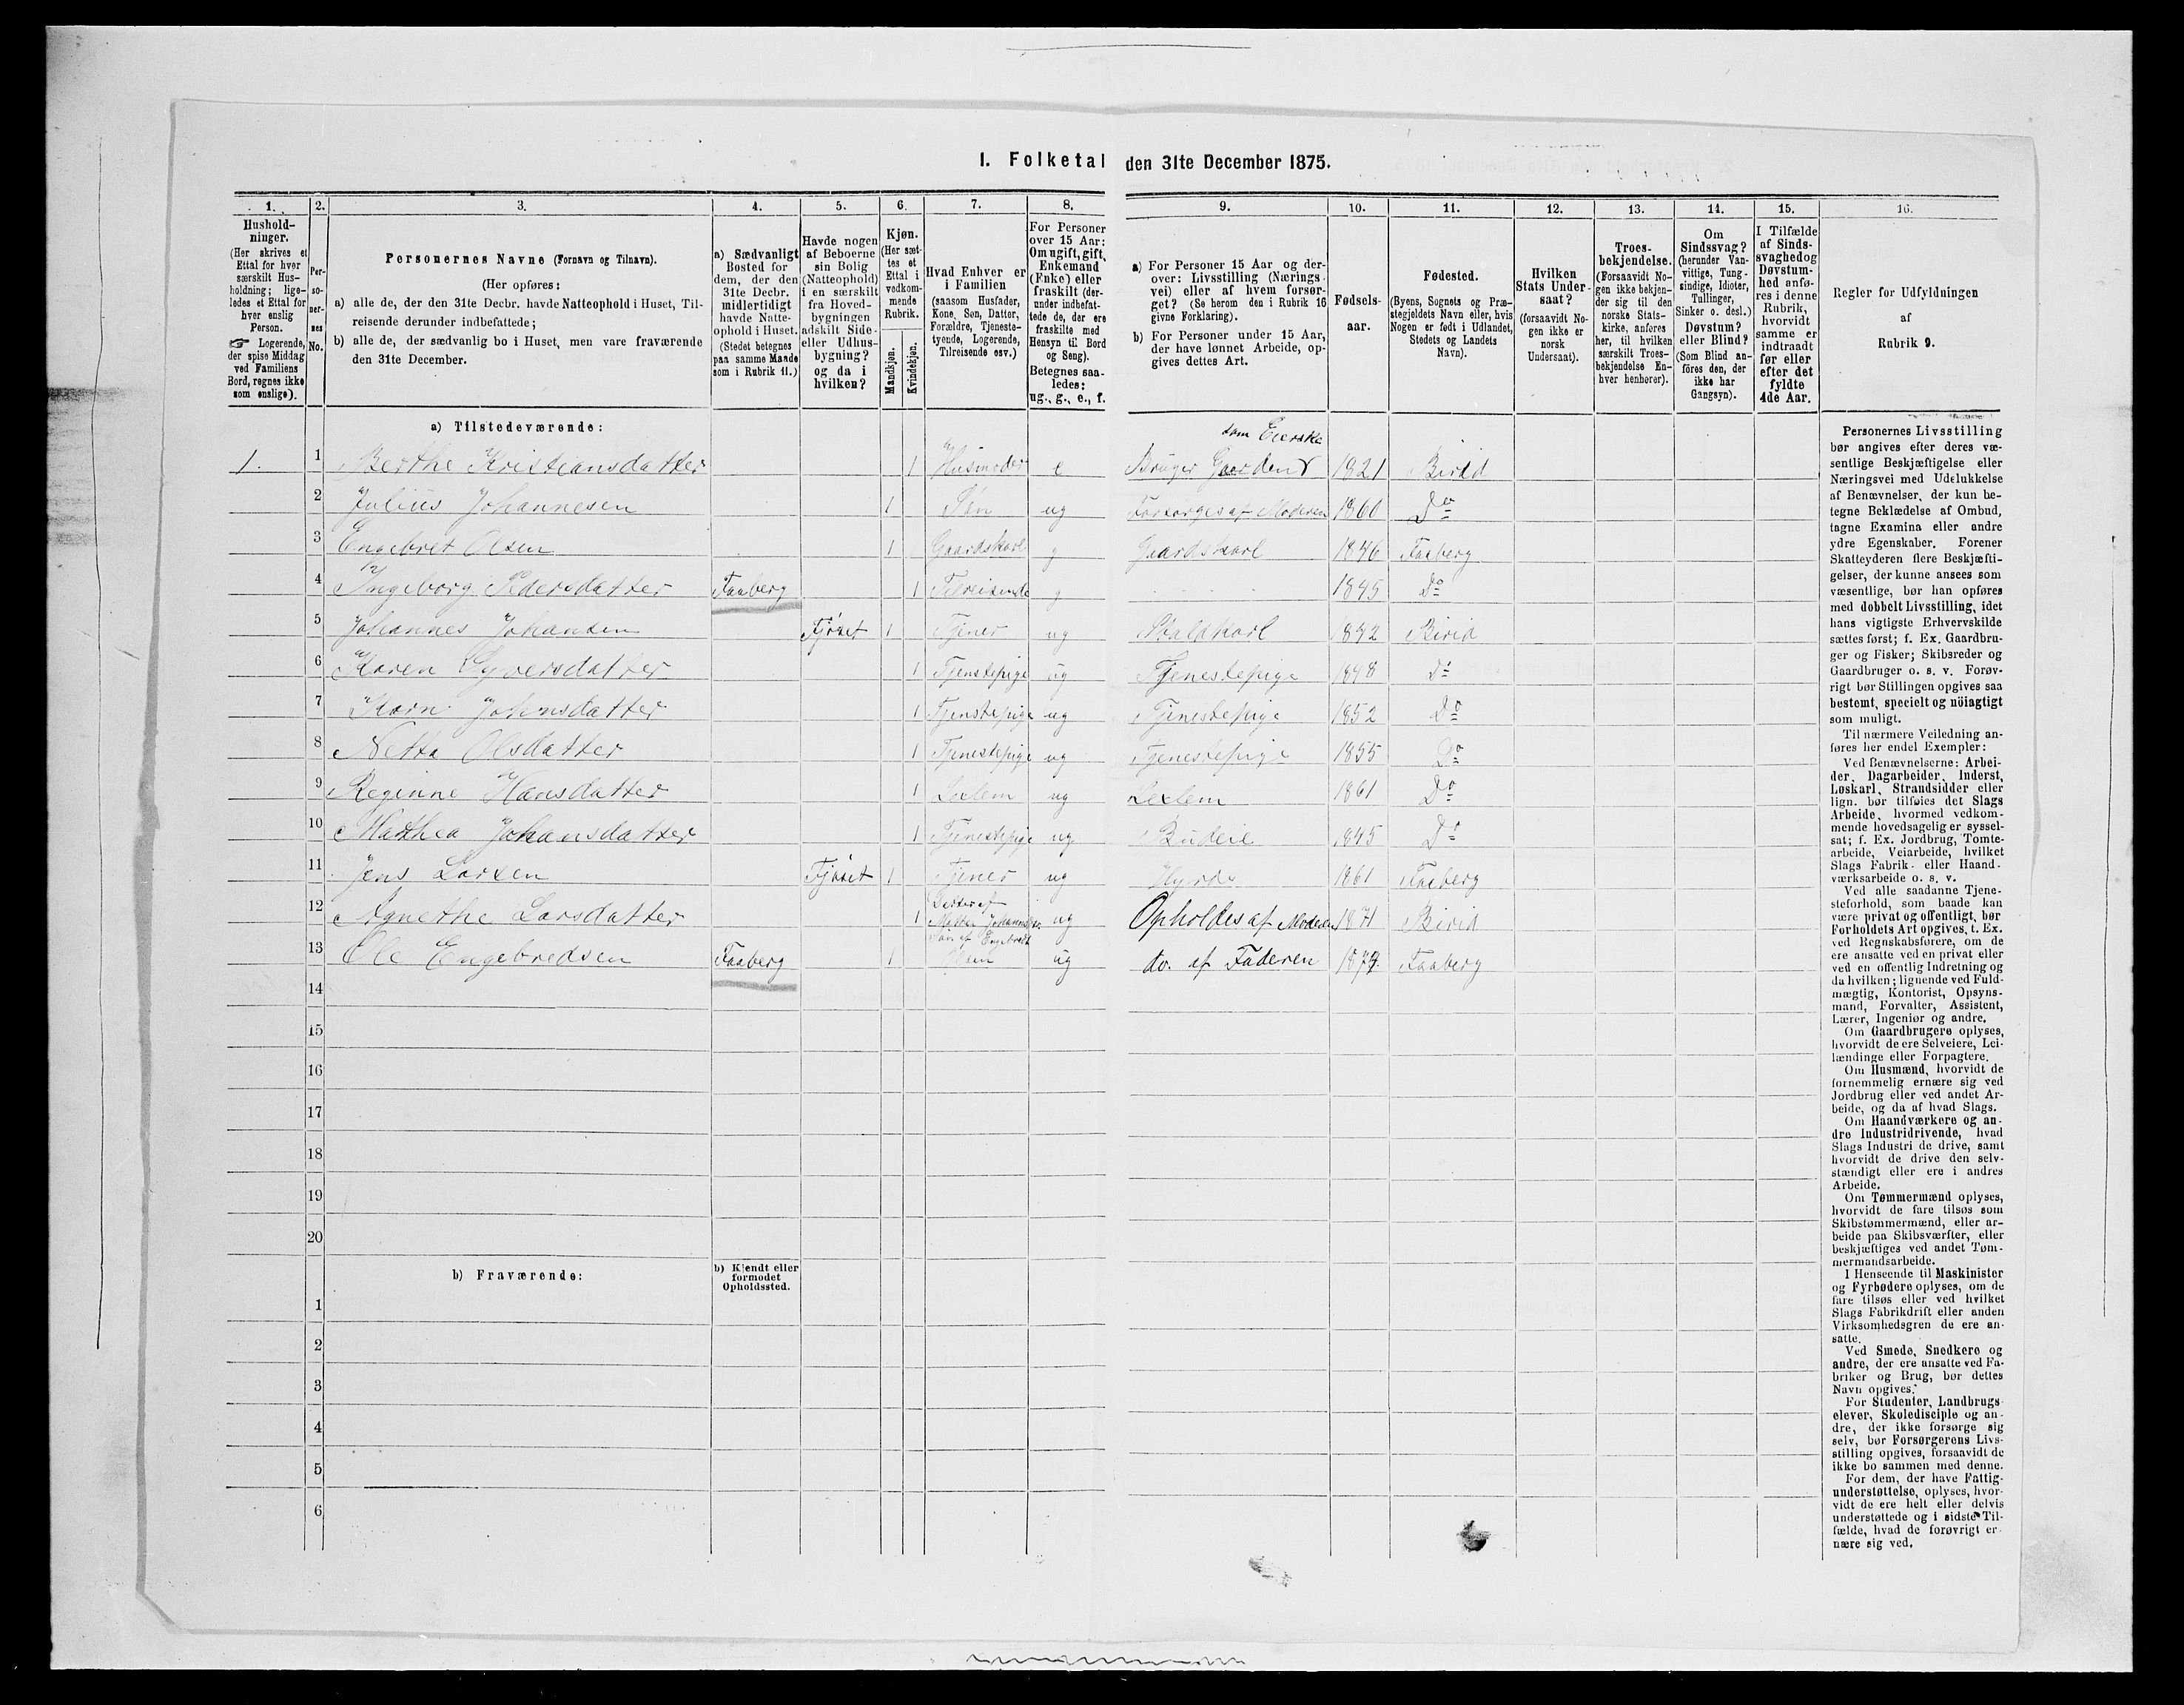 1. Folketal den 31te December 1875.
1. 2. 3. 4. 5. 6. 7. 8. 9. 10. 11. 12. 13. 14. 15. 16.
Hushold-
ninger.
(Her skrives et
Ettal for hver
særskilt Hus-
holdning; lige-
ledes et Ettal for
hver enslig
Person.
☞ Logerende,
der spise Middag
ved Familiens
Bord, regnes ikke
som enslige).
Per-
so-
ner-
nes
No.
Personernes Navne (Fornavn og Tilnavn).
(Her opføres:
a) alle de, der den 31te Decbr. havde Natteophold i Huset, Til-
reisende derunder indbefattede;
b) alle de, der sædvanlig bo i Huset, men vare fraværende
den 31te December.
a) Sædvanligt
Bosted for
dem, der den
31te Decbr.
midlertidigt
havde Natte-
ophold i Huset.
(Stedet betegnes
paa samme Maade
som i Rubrik 11.)
Havde nogen
af Beboerne
sin Bolig
(Natteophold)
i en særskilt
fra Hoved-
bygningen
adskilt Side-
eller Udhus-
bygning?
og da i
hvilken?
Kjøn.
(Her sæt-
tes et
Ettal i
vedkom-
mende
Rubrik.
Mandkjøn.
Kvindekjøn.
Hvad Enhver er
i Familien
(saasom Husfader,
Kone, Søn, Datter,
Forældre, Tjeneste-
tyende, Logerende,
Tilreisende osv.)
For Personer
over 15 Aar:
Om ugift, gift,
Enkemand
(Enke) eller
fraskilt (der-
under indbefat-
tede de, der ere
fraskilte med
Hensyn til Bord
og Seng).
Betegnes saa-
ledes:
ug., g., e., f.
a) For Personer 15 Aar og der-
over: Livsstilling (Nærings-
vei) eller af hvem forsør-
get? (Se herom den i Rubrik 16
givne Forklaring).
b) For Personer under 15 Aar,
der have lønnet Arbeide, op-
gives dettes Art.
Fødsels-
aar.
Fødested.
(Byens, Sognets og Præ-
stegjeldets Navn eller, hvis
Nogen er født i Udlandet,
Stedets og Landets
Navn).
Hvilken
Stats Under-
saat?
(forsaavidt No-
gen ikke er
norsk
Undersaat).
Troes-
bekjendelse.
(Forsaavidt No-
gen ikke bekjen-
der sig til den
norske Stats-
kirke, anføres
her, til hvilken
særskilt Troes-
bekjendelse En-
hver henhører).
Om
Sindssvag?
(herunder Van-
vittige, Tung-
sindige, Idioter,
Tullinger,
Sinker o. desl.)
Døvstum?
eller Blind?
(Som Blind an-
føres den, der
ikke har
Gangsyn).
I Tilfælde
af Sinds-
svaghed og
Døvstum-
hed anfø-
res i denne
Rubrik,
hvorvidt
samme er
indtraadt
før eller
efter det
fyldte
4de Aar.
Regler for Udfyldningen
af
Rubrik 9.
a) Tilstedeværende:
som Eierske
1. 1 Berthe Kristiansdatter 1 Husmoder e Bruger Gaarden 1821 Birid
2 Julius Johannesen 1 Søn ug Forsørges af Moderen 1860 Do
3 Engebret Olsen 1 Gaardskarl g Gaardskarl 1846 Faaberg
4 Ingeborg Pedersdatter Faaberg 1 Tilreisende g 1845 Do
5 Johannes Johansen Fjøset 1 Tjener ug Staldkarl 1842 Birid
6 Karen Syversdatter 1 Tjenstepige ug Tjenestepige 1848 Do
7 Karn Johansdatter 1 Tjenstepige ug Tjenestepige 1852 Do
8 Netta Olsdatter 1 Tjenestepige ug Tjenestepige 1855 Do
9 Reginne Hansdatter 1 Lexlem ug Lexlem 1861 Do
10 Mathea Johansdatter 1 Tjenestepige ug Budeie 1845 Do
11 Jens Larsen Fjøset 1 Tjener ug Hyrde 1861 Faaberg
12 Agnethe Larsdatter 1 Datter af Mathea Johansdtr. ug Opholdes af Moderen 1871 Birid
13 Ole Engebredsen Faaberg 1 Søn af Engebret Olsen ug do. af Faderen 1874 Faaberg
14
15
16
17
18
19
20
b) Fraværende:
b) Kjendt eller
formodet
Opholdssted.
1
2
3
4
5
6
Personernes Livsstilling
bør angives efter deres væ-
sentlige Beskjæftigelse eller
Næringsvei med Udelukkelse
af Benævnelser, der kun be-
tegne Beklædelse af Ombud,
tagne Examina eller andre
ydre Egenskaber. Forener
Skatteyderen flere Beskjæfti-
gelser, der kunne ansees som
væsentlige, bør han opføres
med dobbelt Livsstilling, idet
hans vigtigste Erhvervskilde
sættes først; f. Ex. Gaardbru-
ger og Fisker; Skibsreder og
Gaardbruger o. s. v. Forøv-
rigt bør Stillingen opgives saa
bestemt, specielt og nøiagtigt
som muligt.
Til nærmere Veiledning an-
føres her endel Exempler:
Ved Benævnelserne: Arbei-
der, Dagarbeider, Inderst,
Løskarl, Strandsidder eller
lign. bør tilføies det Slags
Arbeide, hvormed vedkom-
mende hovedsagelig er syssel-
sat; f. Ex. Jordbrug, Tomte-
arbeide, Veiarbeide, hvilket
Slags Fabrik- eller Haand-
værksarbeide o. s. v.
Ved alle saadanne Tjene-
steforhold, som baade kan
være privat og offentligt, bør
Forholdets Art opgives, t. Ex.
ved Regnskabsførere, om de
ere ansatte ved en privat eller
ved en offentlig Indretning og
da hvilken; lignende ved Fuld-
mægtig, Kontorist, Opsyns-
mand, Forvalter, Assistent,
Lærer, Ingeniør og andre.
Om Gaardbrugere oplyses,
hvorvidt de ere Selveiere, Lei-
lændinge eller Forpagtere.
Om Husmænd, hvorvidt de
fornemmelig ernære sig ved
Jordbrug eller ved andet Ar-
beide, og da af hvad Slags.
Om Haandværkere og an-
dre Industridrivende, hvad
Slags Industri de drive, samt
hvorvidt de drive den selv-
stændigt eller ere i andres
Arbeide.
Om Tømmermænd oplyses,
hvorvidt de fare tilsøs som
Skibstømmermænd, eller ar-
beide paa Skibsværfter, eller
beskjæftiges ved andet Tøm-
mermandsarbeide.
I Henseende til Maskinister
og Fyrbødere oplyses, om de
fare tilsøs eller ved hvilket
Slags Fabrikdrift eller anden
Virksomhedsgren de ere an-
satte.
Ved Smede, Snedkere og
andre, der ere ansatte ved Fa-
briker og Brug, bør dettes
Navn opgives.
For Studenter, Landbrugs-
elever, Skoledisciple og an-
dre, der ikke forsørge sig
selv, bør Forsørgerens Livs-
stilling opgives, forsaavidt de
ikke bo sammen med denne.
For dem, der have Fattig-
understøttelse, oplyses, hvor-
vidt de ere helt eller delvis
understøttede og i sidste Til-
fælde, hvad de forøvrigt er-
nære sig ved.